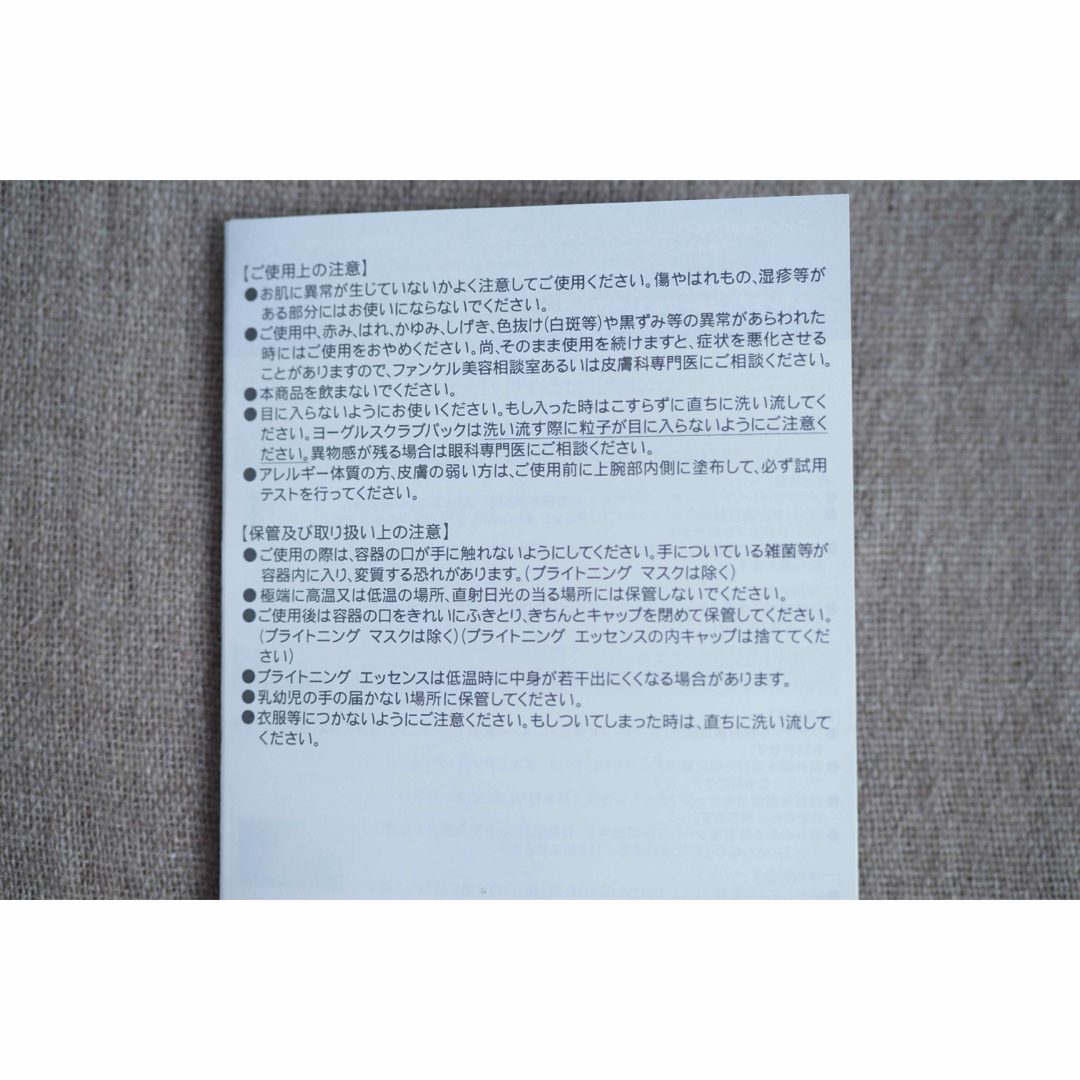 【ご使用上の注意】
●お肌に異常が生じていないかよく注意してご使用ください。傷やはれもの、湿疹等が
ある部分にはお使いにならないでください。
●ご使用中、赤み、はれ、かゆみ、しげき、色抜け(白斑等)や黒ずみ等の異常があらわれた
時にはご使用をおやめください。尚、そのまま使用を続けますと、症状を悪化させる
ことがありますので、ファンケル美容相談室あるいは皮膚科専門医にご相談ください。
●本商品を飲まないでください。
●目に入らないようにお使いください。もし入った時はこすらずに直ちに洗い流してく
ださい。ヨーグルスクラブパックは洗い流す際に粒子が目に入らないようにご注意く
ださい。異物感が残る場合は眼科専門医にご相談ください。
●アレルギー体質の方、皮膚の弱い方は、ご使用前に上腕部内側に塗布して、必ず試用
テストを行ってください。
【保管及び取り扱い上の注意】
●ご使用の際は、容器の口が手に触れないようにしてください。手についている雑菌等が
容器内に入り、変質する恐れがあります。(ブライトニング マスクは除く)
●極端に高温又は低温の場所、直射日光の当る場所には保管しないでください。
●ご使用後は容器の口をきれいにふきとり、きちんとキャップを閉めて保管してください。
(ブライトニング マスクは除く)(ブライトニング エッセンスの内キャップは捨ててくだ
さい)
●ブライトニング エッセンスは低温時に中身が若干出にくくなる場合があります。
●乳幼児の手の届かない場所に保管してください。
●衣服等につかないようにご注意ください。もしついてしまった時は、直ちに洗い流して
ください。